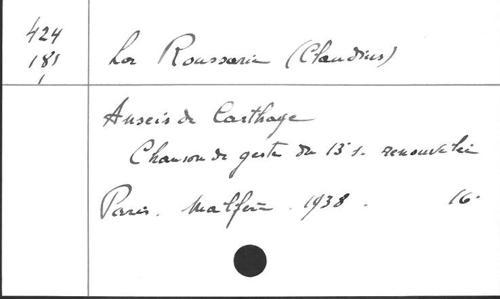 424
181
1
La Roussarie (Claudius)
Anseis de Carthage
Chanson de geste du 13e s. renouvelée
Paris. Malfère. 1938. 16°